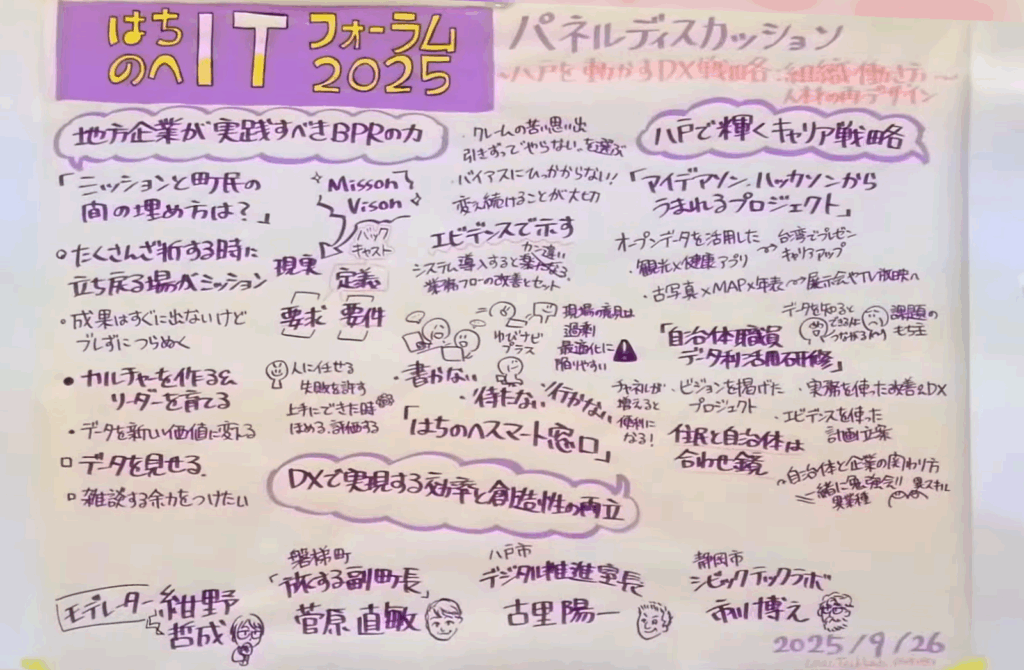 はちのへ IT フォーラム 2025
パネルディスカッション
～八戸を動かすDX戦略:組織・働き方・
人材の再デザイン～
地方企業が実践すべきBPRの力
「ミッションと町民の
間の埋め方は？」
○たくさんざ折する時に
立ち戻る場がミッション
・成果はすぐに出ないけど
ブレずにつらぬく
● カルチャーを作る&
リーダーを育てる
・データを新しい価値に変える
□ データを見せる
□ 雑談する余力をつけたい
Misson
Vison
バック
キャスト
現実
定義
要求 要件
人に任せる
失敗を許す
上手にできた時
ほめる、評価する
・クレームの苦い思い出
引きずって"やらない"を選ぶ
・バイアスにひっかからない!!
変え続けることが大切
エビデンスで示す
カン違い
システム導入すると楽になる
業務フローの改善とセット
ゆびナビ
プラス
現場の意見は
過剰
最適化に
陥りやすい
・書かない
・待たない
・行かない
「はちのへスマート窓口」
チャネルが
増えると
便利に
なる！
八戸で輝くキャリア戦略
「マイデマソン、ハッカソンから
うまれるプロジェクト」
オープンデータを活用した
・観光×健康アプリ
台湾でプレゼン
キャリアアップ
・古写真×MAP×年表 展示会やTV放映へ
「自治体職員
データ利活用研修」
データを知ると
課題の
もち主
・ビジョンを掲げた
プロジェクト
・実務を使った改善&DX
・エビデンスを使った
計画立案
住民と自治体は
合わせ鏡
自治体と企業の関わり方
一緒に勉強会!!
異業種
異スキル
DXで実現する効率と創造性の両立
モデレーター
紺野
哲成
磐梯町
「旅する副町長」
菅原直敏
八戸市
デジタル推進室長
古里陽一
静岡市
シビックテックラボ
市川博之
2025/9/26